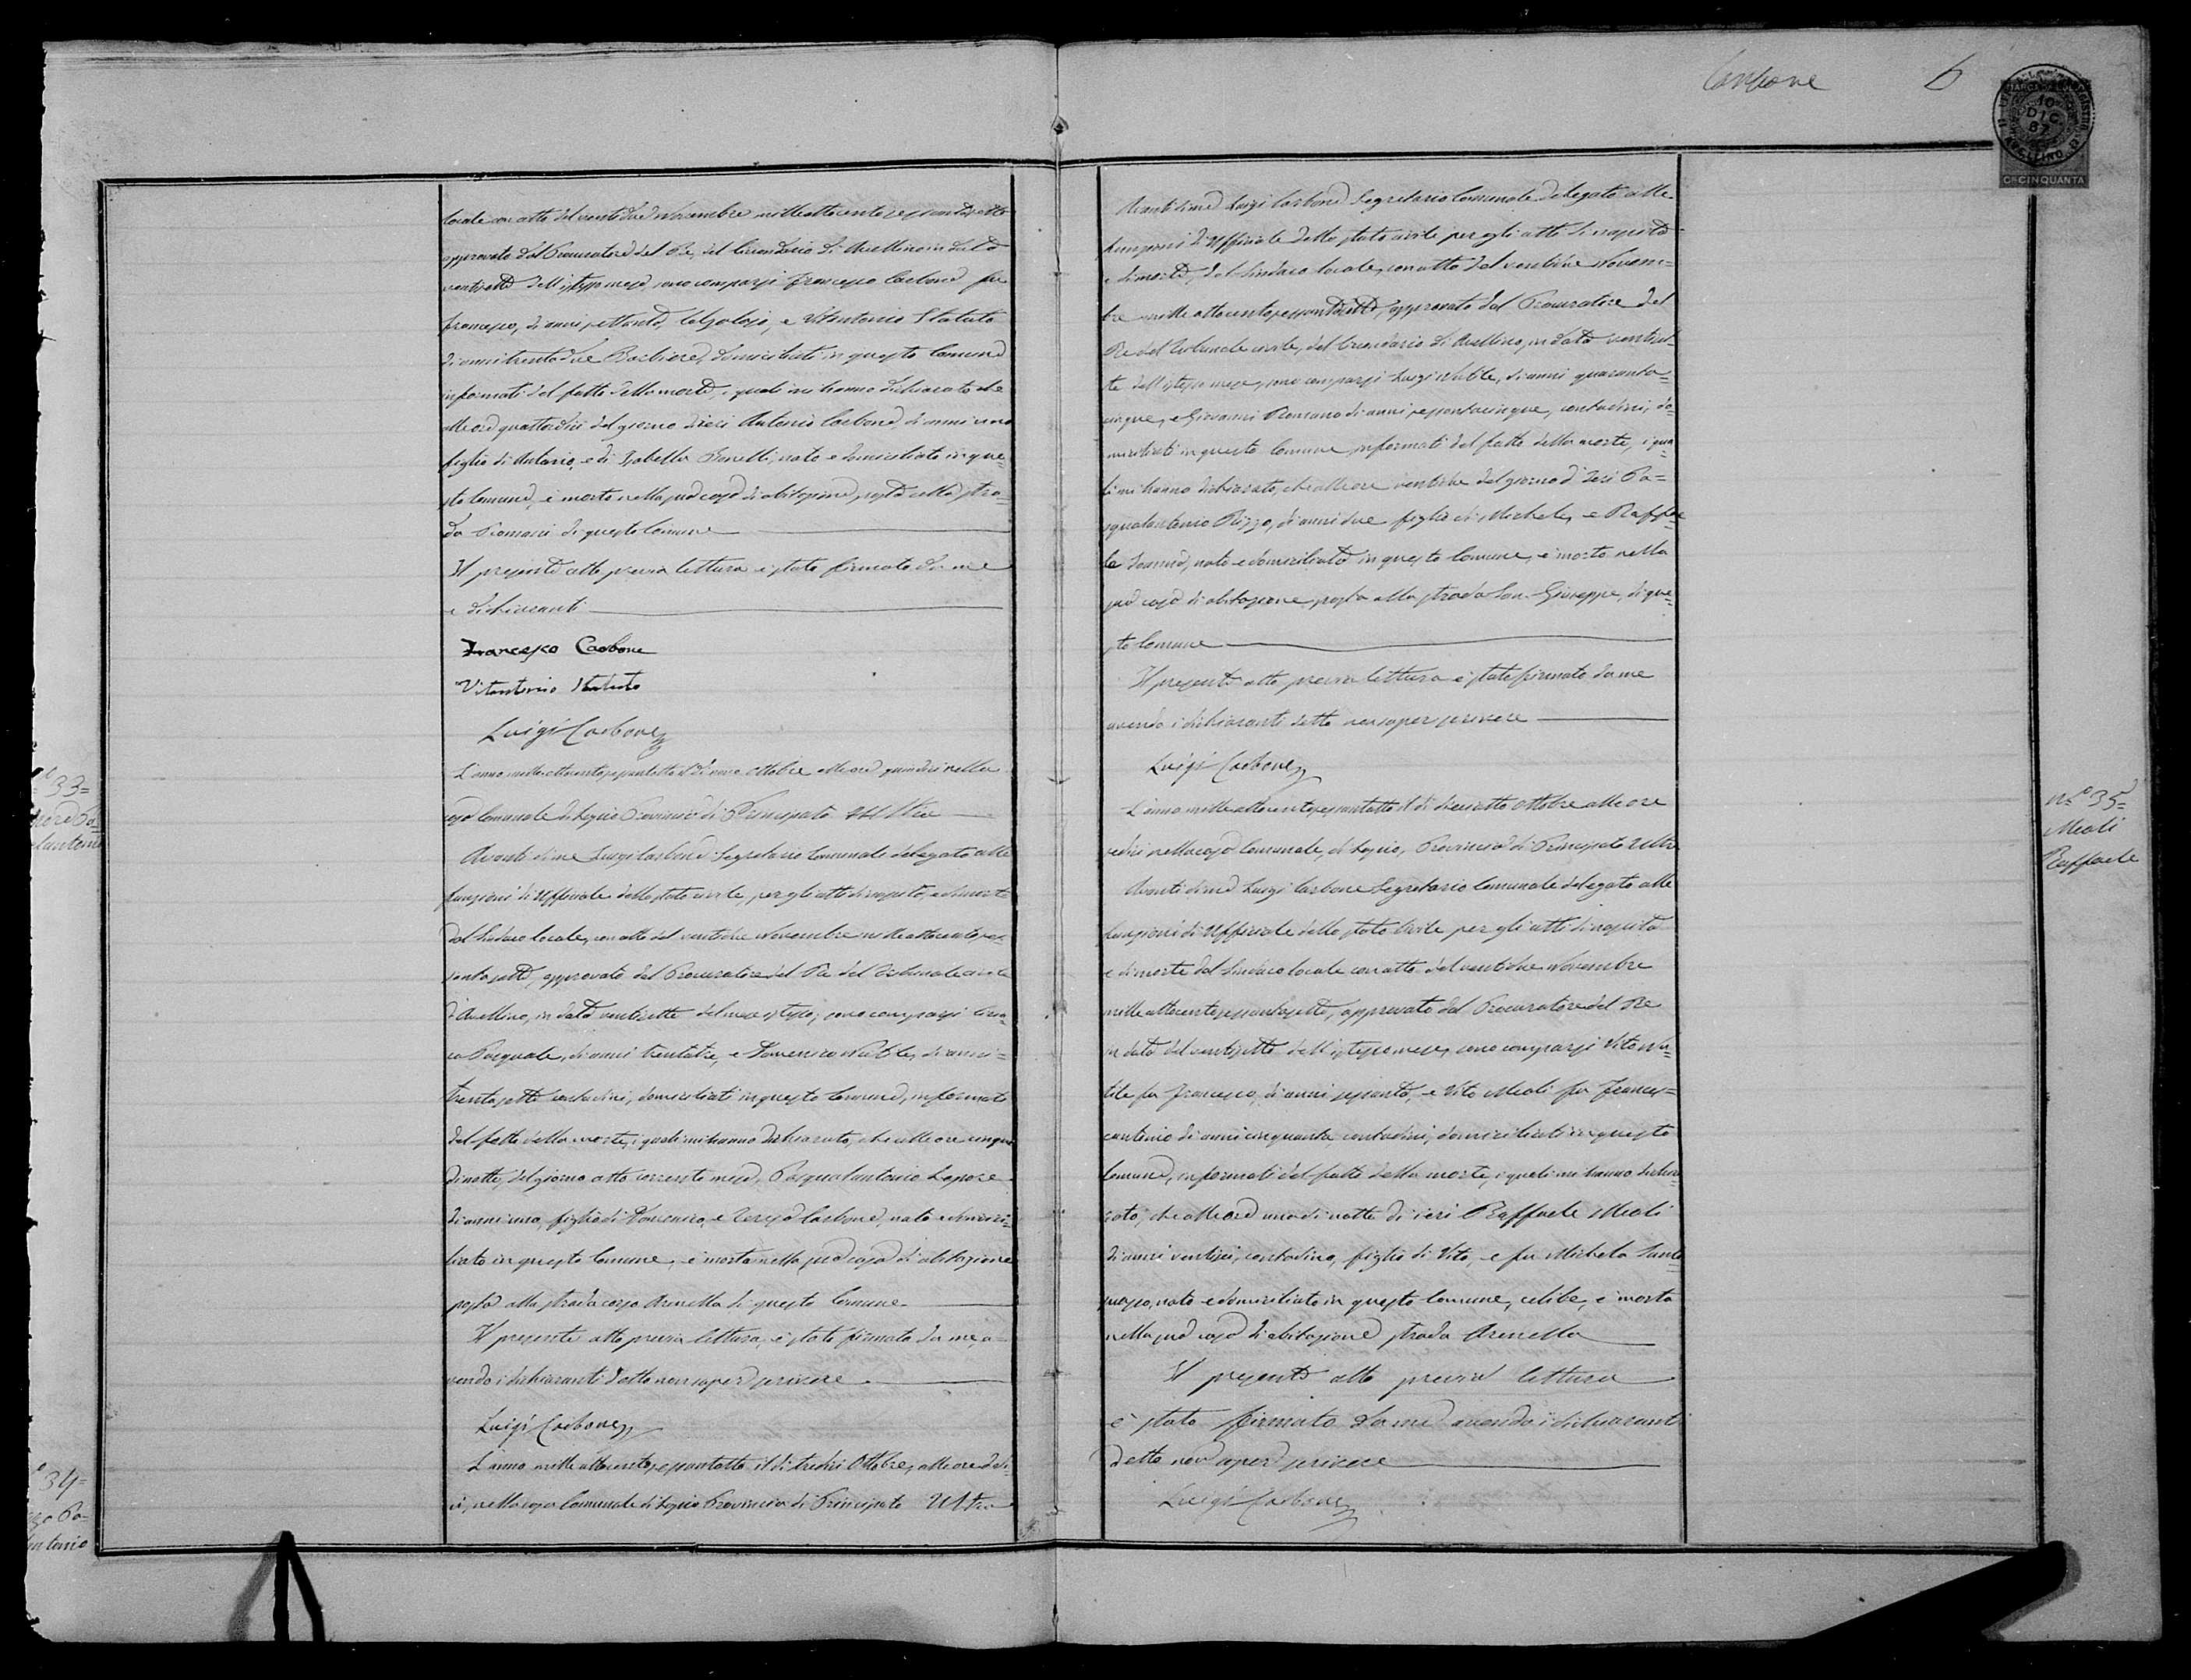 locale con atto del ventidue Novembre milleottocentosessantasette
approvato dal Procuratore del Re, del Circondario di Avellino in data
ventisette dell'istesso mese, sono comparsi Francesco Carbone fu
Francesco, di anni settanta, Calzolajo, e Vitantonio Statuto
di anni trentadue Barbiere, domiciliati in questo Comune
informati del fatto della morte, i quali mi hanno dichiarato che
alle ore quattordici del giorno di ieri Antonio Carbone, di anni uno
figlio di Antonio, e di Isabella Bonelli, nato e domiciliato in que=
sto Comune, è morto nella sua casa di abitazione, posta alla stra=
da di questo Comune
Il presente atto previa lettura è stato firmato da me
e dichiaranti
Francesco Carbone
Vitantonio Statuto
Luigi Carbone
L'anno milleottocentosessantotto il dì nove Ottobre alle ore quindici nella
casa Comunale di Lapio Provincia di Principato Ultra
Avanti di me Luigi Carbone Segretario Comunale delegato alle
funzioni di Uffiziale dello stato civile, per gli atti di nascita, e di morte
dal Sindaco locale, con atto del ventidue Novembre milleottocentoses=
santasette, approvato dal Procuratore del Re del Tribunale civile
d'Avellino, in data ventisette del mese istesso, sono comparsi
Pasquale, di anni trentatre, e Domenico Nutile, di anni=
trentasette contadini, domiciliati in questo Comune, informati
del fatto della morte, i quali mi hanno dichiarato, che alle ore cinque
di notte, del giorno otto corrente mese, Pasqualantonio Lepore
di anni uno, figlio di Domenico, e Teresa Carbone, nato e domici=
liato in questo Comune, è morto nella sua casa di abitazione
posta alla strada corso Arenella di questo Comune
Il presente atto previa lettura, è stato firmato da me, a
vendo i dichiaranti detto non saper scrivere
Luigi Carbone
L'anno milleottocentosessantotto il dì tredici Ottobre, alle ore
nella casa Comunale di Lapio Provincia di Principato Ultra
33=
34=
Carbone 6
10
DIC
87
AVELLINO
CMI CINQUANTA
Avanti di me Luigi Carbone Segretario Comunale delegato alle
funzioni di Uffiziale dello stato civile per gli atti di nascita
e di morte, dal Sindaco locale, con atto del ventidue Novem=
bre milleottocentosessantasette, approvato dal Procuratore del
Re del Tribunale civile, del Circondario di Avellino, in data ventiset=
te dell'istesso mese, sono comparsi Luigi Nutile, di anni quaranta=
cinque, e Giovanni Romano di anni sessantacinque, contadini, do=
miciliati in questo Comune, informati del fatto della morte, i qua=
li mi hanno dichiarato, che alle ore ventidue del giorno di ieri Pa=
squalantonio Rizzo, di anni due figlio di Michele, e Raffae=
la nato e domiciliato in questo Comune, è morto nella
sua casa di abitazione, posta alla strada San Giuseppe, di que=
sto Comune
Il presente atto previa lettura è stato firmato da me
avendo i dichiaranti detto non saper scrivere
Luigi Carbone
L'anno milleottocentosessantotto il dì diciotto Ottobre alle ore
sedici nella casa Comunale, di Lapio, Provincia di Principato Ultra
Avanti di me Luigi Carbone Segretario Comunale delegato alle
funzioni di Uffiziale dello stato Civile per gli atti di nascita
e di morte dal Sindaco locale con atto del ventidue Novembre
milleottocentosessantasette, approvato dal Procuratore del Re
in data del ventisette dell'istesso mese, sono comparsi Vito Nu=
tile fu Francesco, di anni sessanta, e Vito Meoli fu Frances=
cantonio di anni cinquanta, contadini, domiciliati in questo
Comune, informati del fatto della morte, i quali mi hanno dichia=
rato, che alle ore una di notte di ieri Raffaele Meoli
di anni ventisei, contadino, figlio di Vito, e fu Michela
nato e domiciliato in questo Comune, celibe, è morto
nella sua casa di abitazione strada Arenella
Il presente atto previa lettura
è stato firmato da me avendo i dichiaranti
detto non saper scrivere
Luigi Carbone
N.° 35=
Meoli
Raffaele